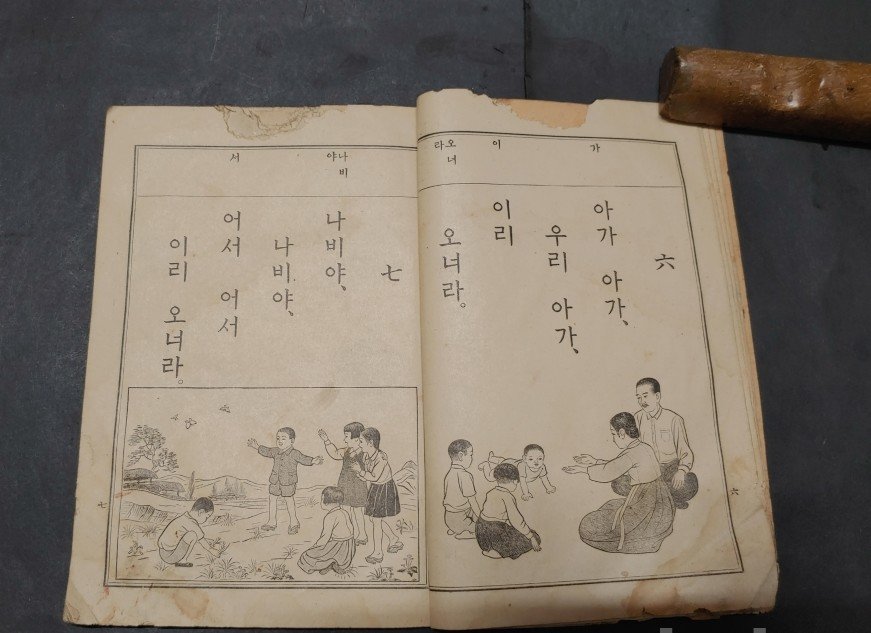 가
이
오너라
六
아가 아가、
우리 아가、
이리
오너라。
六
나비야
서
七
나비야、
나비야、
어서 어서
이리 오너라。
七